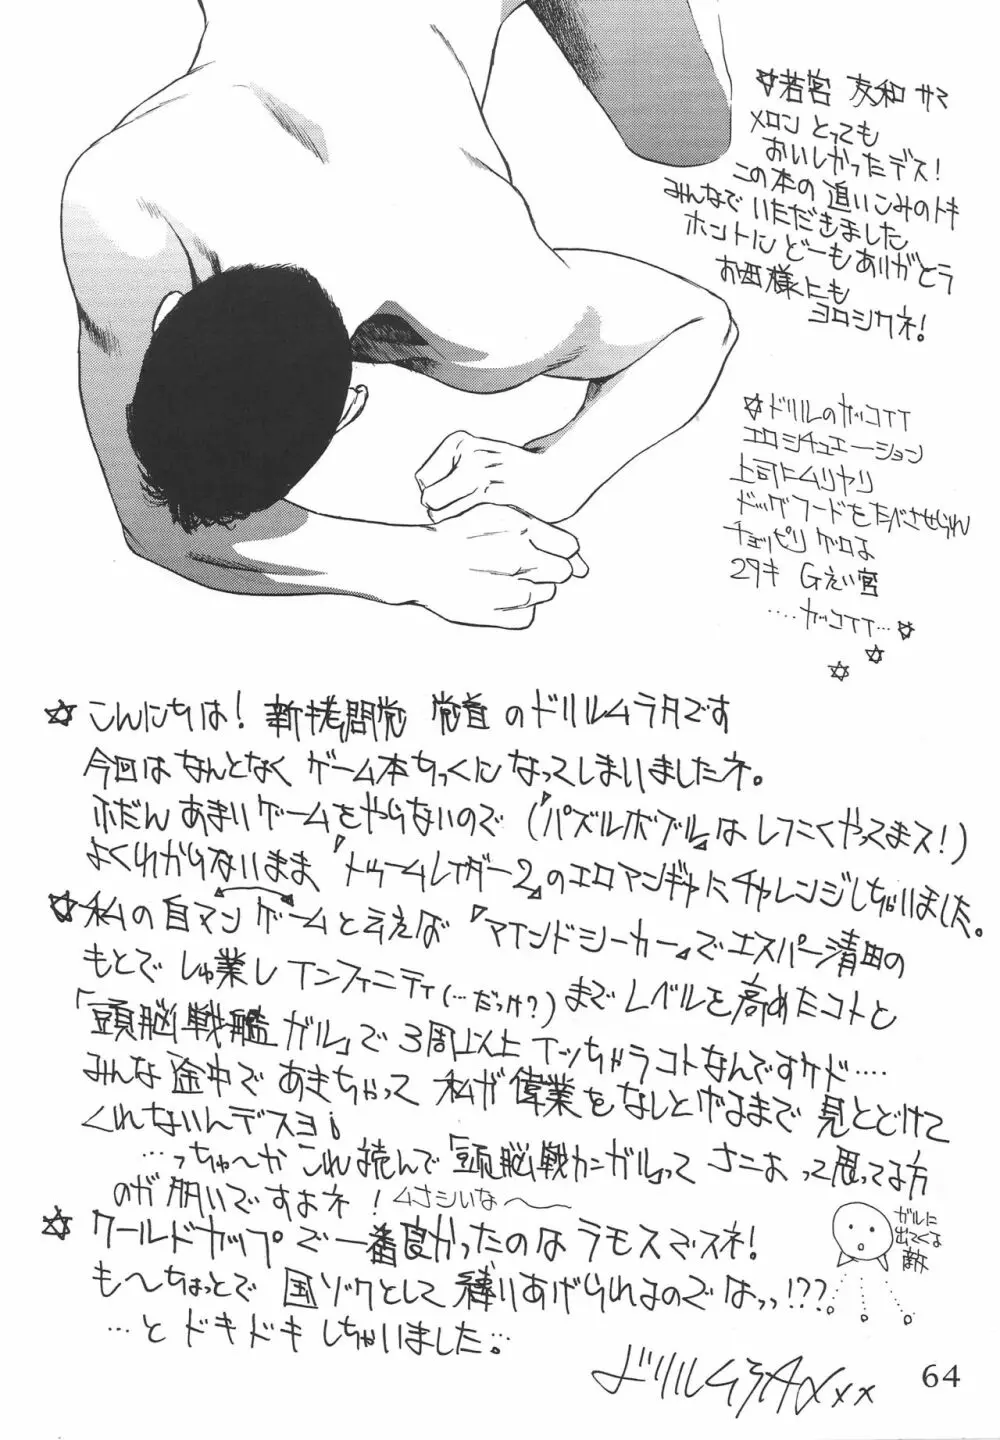 ☆若宮 友和 サマ
メロン とっても
おいしかったデス!
この本の 追いこみのトキ
みんなで いただきました
ホントに どーもありがとう
お母様にも
ヨロシクネ!
☆ドリルのカッコイイ
エロシチュエーション
上司にムリヤリ
ドッグフードをたべさせられ
チョッピリ ゲロな
29才 Gえい官
....カッコイイ...☆
☆
☆
☆こんにちは! 新拷問党 党首 のドリルムラタです
今回は なんとなく ゲーム本ちっくに なってしまいましたネ。
ふだん あまりゲームをやらないので (『パズルボブル』は しつこくやってマス!)
よくわからないまま『トゥームレイダー2』のエロマンガにチャレンジしちゃいました。
☆私の自マン ゲームと云えば『マインドシーカー』でエスパー清田の
もとで しゅ業し インフィニティ(…だっけ?)まで レベルを高めたコトと
「頭脳戦艦 ガル」で 3周以上 イッちゃったコトなんですケド....
みんな 途中で あきちゃって 私が偉業を なしとげるまで 見とどけて
くれないんデスョ!
…っちゅ〜か これ読んで「頭脳戦カンガル」って ナニよ って思ってる方
のが 多いですよネ! ムナシいな〜
ガルに
出てくる
敵
☆ワールドカップで一番良かったのは ラモスでスネ!
も〜ちょっとで 国ゾクとして 祭りあげられるのでは…っっ!???。
…と ドキドキ しちゃいました。…
ドリルムラタ xxx
64